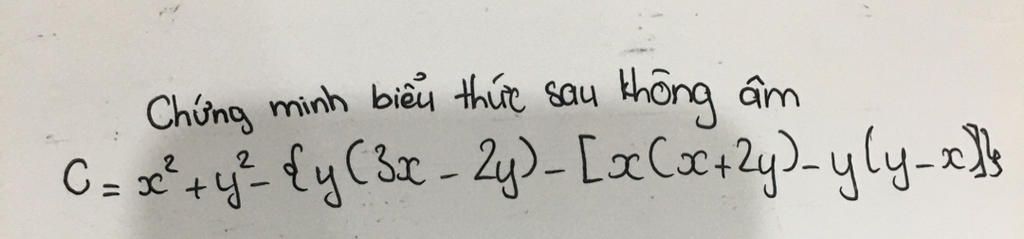 Chứng minh biểu thức sau không âm
C = x² + y² - {y(3x - 2y) - [x(x + 2y) - y(y - x)]}